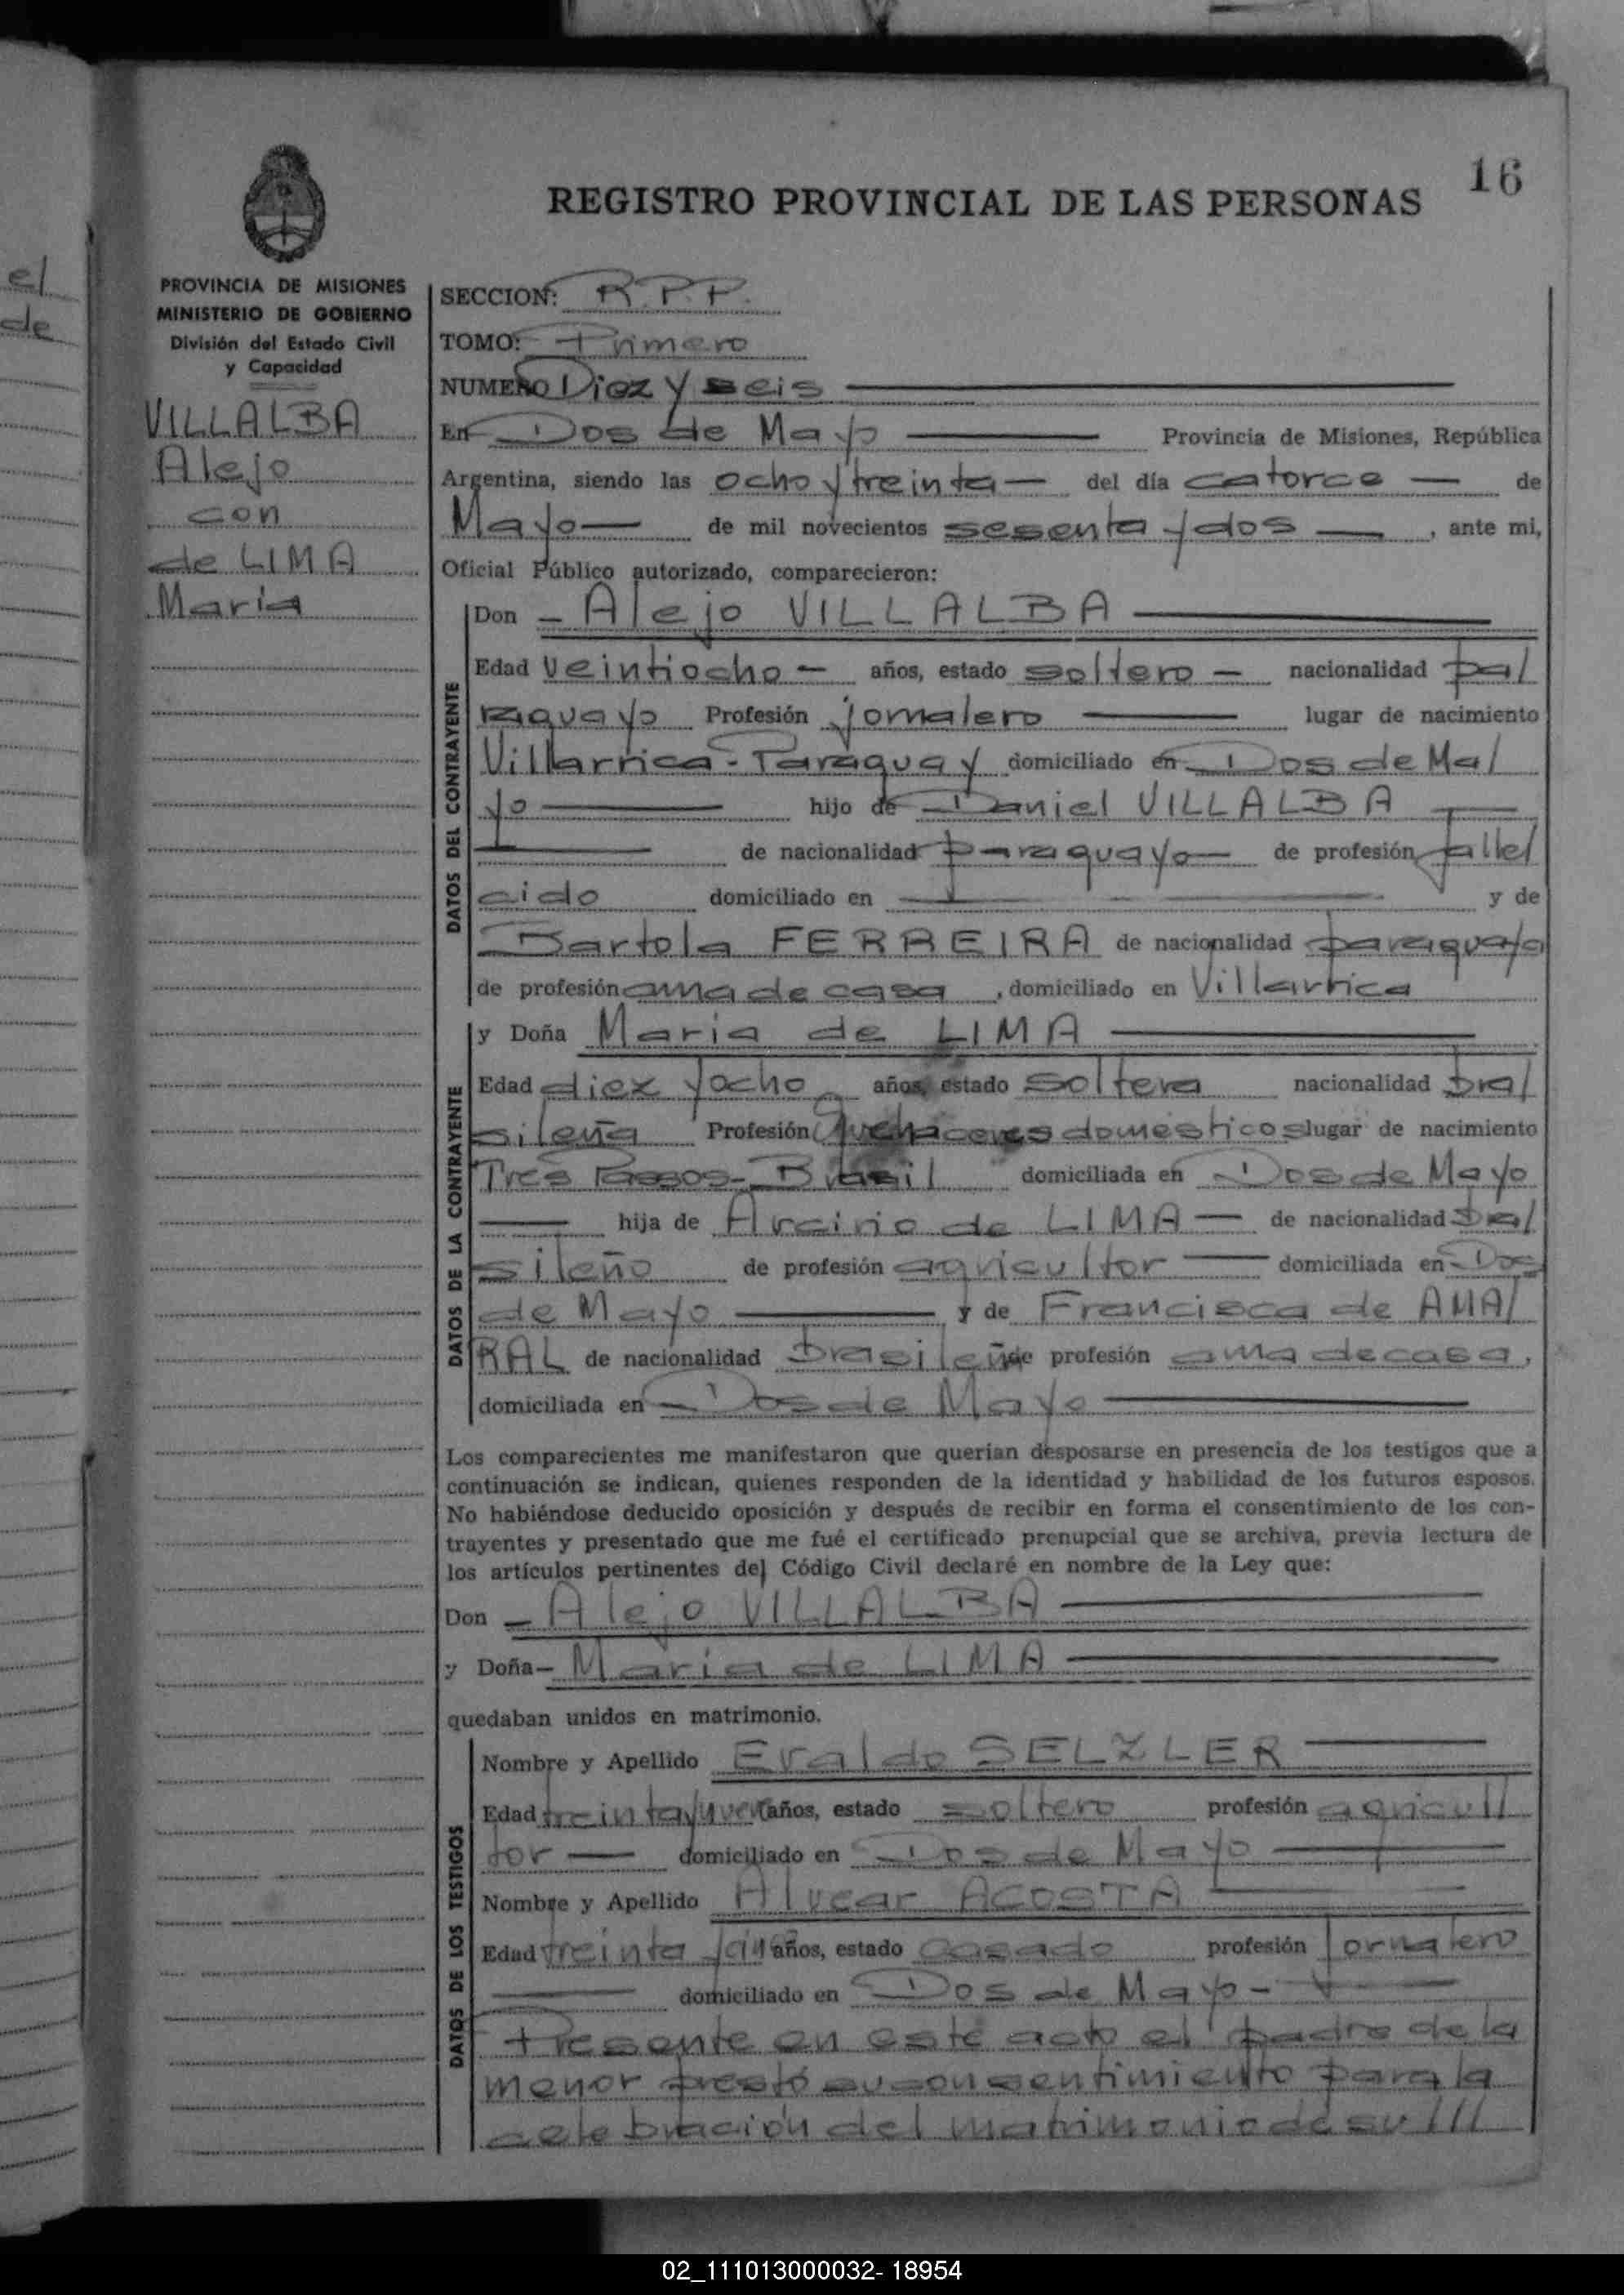 16
REGISTRO PROVINCIAL DE LAS PERSONAS
el
de
PROVINCIA DE MISIONES
MINISTERIO DE GOBIERNO
División del Estado Civil
y Capacidad
VILLALBA
Alejo
con
de LIMA
Maria
SECCION: R.P.P.
TOMO: Primero
NUMERO Diez y seis
En Dos de Mayo Provincia de Misiones, República
Argentina, siendo las ocho y treinta — del día catorce — de
Mayo — de mil novecientos sesenta y dos — , ante mi,
Oficial Público autorizado, comparecieron:
DATOS DEL CONTRAYENTE
Don — Alejo VILLALBA
Edad veintiocho — años, estado soltero — nacionalidad pa/
raguayo Profesión jornalero — lugar de nacimiento
Villarrica - Paraguay domiciliado en Dos de Ma/
yo — hijo de Daniel VILLALBA
— de nacionalidad paraguayo — de profesión falle/
cido domiciliado en — y de
Bartola FERREIRA de nacionalidad paraguaya
de profesión ama de casa , domiciliado en Villarrica
DATOS DE LA CONTRAYENTE
y Doña Maria de LIMA
Edad diez y ocho años, estado soltera nacionalidad bra/
sileña Profesión Quehaceres domesticos lugar de nacimiento
Tres Passos - Brasil domiciliada en Dos de Mayo
— hija de de LIMA — de nacionalidad bra/
sileño de profesión agricultor — domiciliada en Dos
de Mayo — y de Francisca de AMA/
RAL de nacionalidad brasileña de profesión ama de casa ,
domiciliada en Dos de Mayo
Los comparecientes me manifestaron que querían desposarse en presencia de los testigos que a
continuación se indican, quienes responden de la identidad y habilidad de los futuros esposos.
No habiéndose deducido oposición y después de recibir en forma el consentimiento de los con-
trayentes y presentado que me fué el certificado prenupcial que se archiva, previa lectura de
los artículos pertinentes del Código Civil declaré en nombre de la Ley que:
Don — Alejo VILLALBA
y Doña — Maria de LIMA
quedaban unidos en matrimonio.
DATOS DE LOS TESTIGOS
Nombre y Apellido Eraldo SELZLER
Edad treinta y años, estado soltero profesión agricul/
tor — domiciliado en Dos de Mayo
Nombre y Apellido Alvear ACOSTA
Edad treinta años, estado casado profesión jornalero
— domiciliado en Dos de Mayo -
Presente en este acto el padre de la
menor prestó su consentimiento para la
celebración del matrimonio de su ///
02_111013000032- 18954